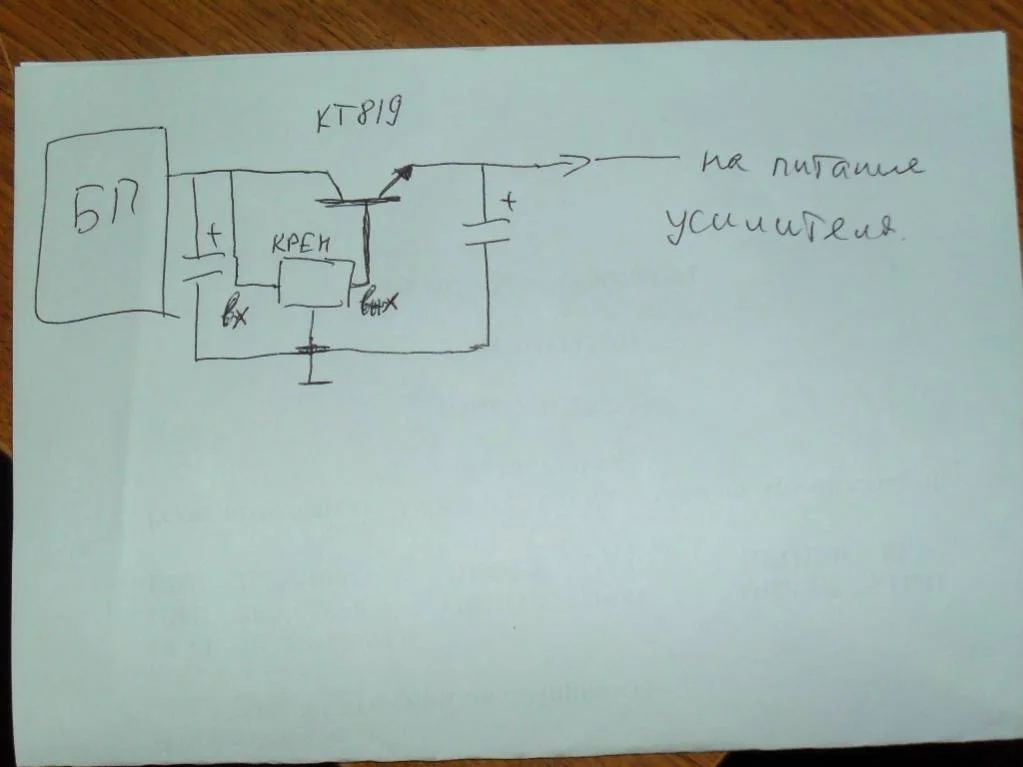 КТ819
БП
+
КРЕН
вх
вых
+
на питание
усилителя.